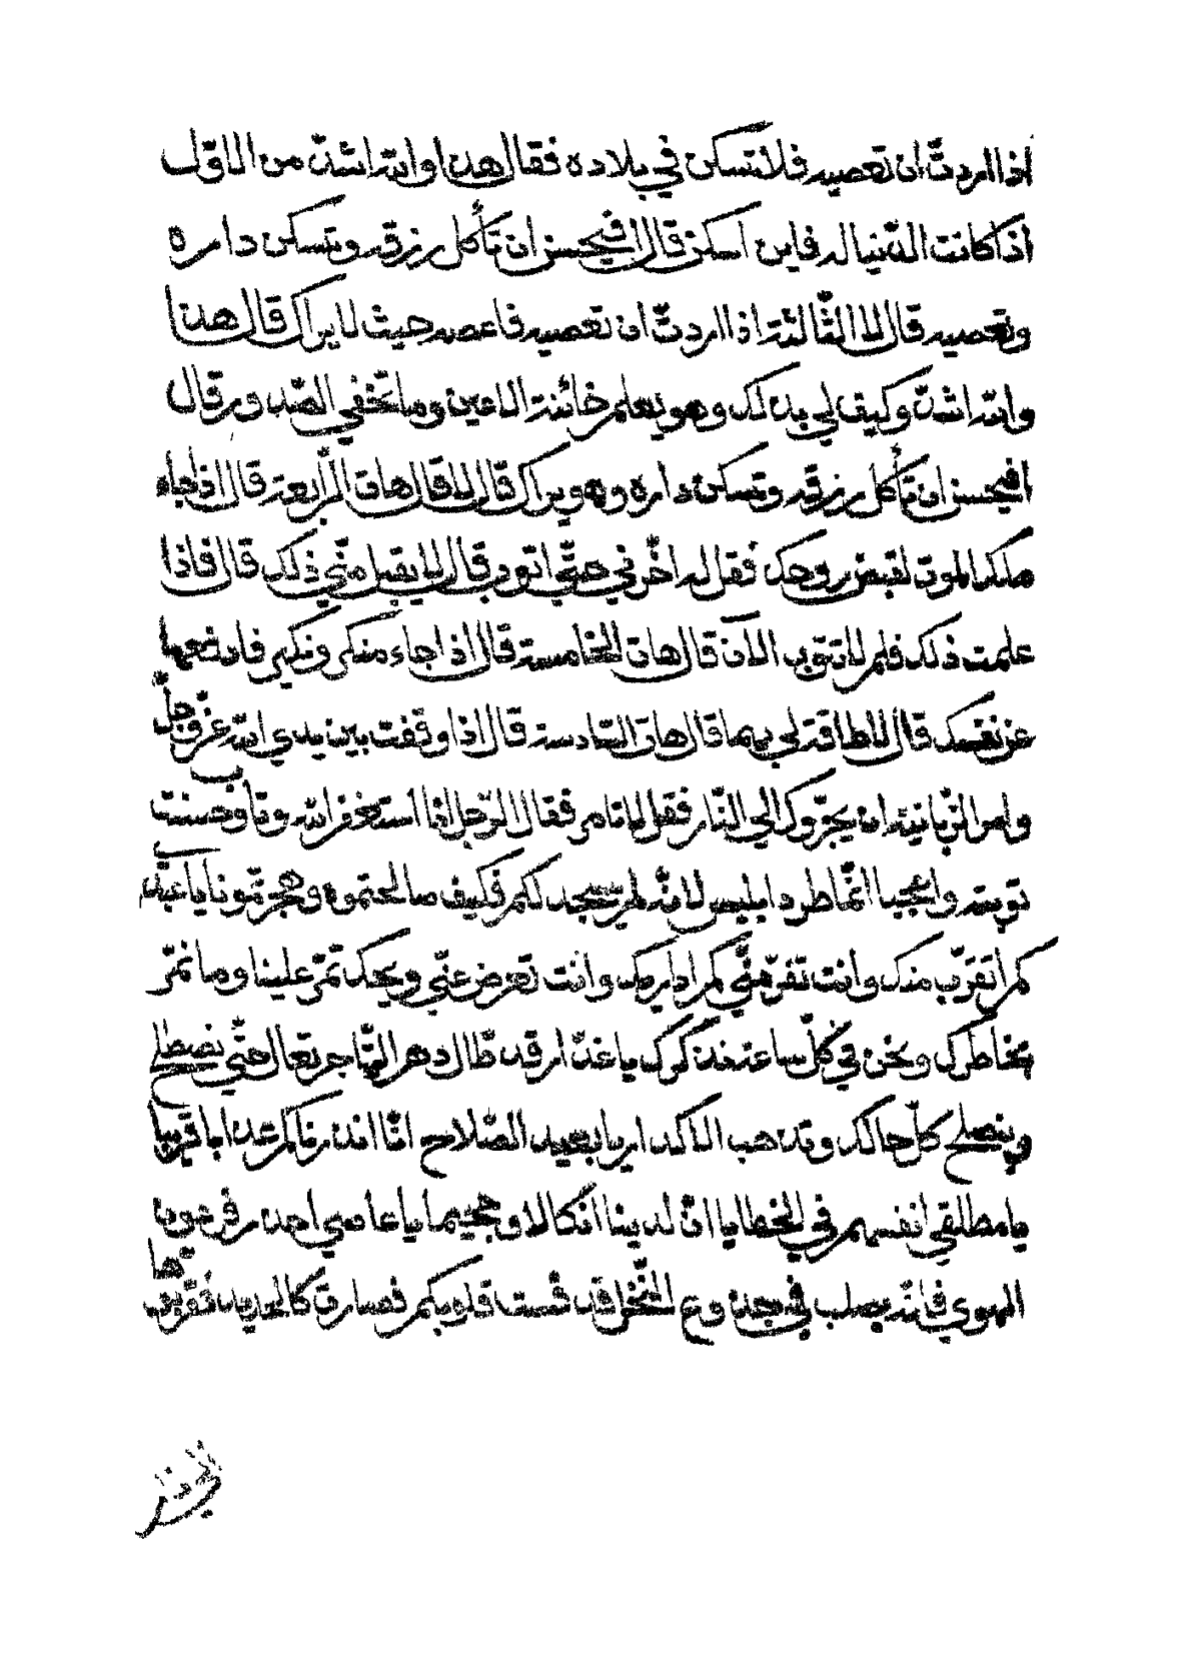 اذا اردتّ ان تعصيه فلا تسكن في بلاده فقال هذا والله اشدّ من الاوّل
اذا كانت الدّنيا له فاين اسكن قال افيحسن ان تأكل رزقه وتسكن داره
وتعصيه قال لا الثّالثة اذا اردتّ ان تعصيه فاعصه حيث لا يراك قال هذا
والله اشدّ وكيف لي بذلك وهو يعلم خائنة الاعين وما تخفي الصّدور قال
افيحسن ان تأكل رزقه وتسكن داره وهو يراك قال لا قال هات الرّابعة قال اذا جاء
ملك الموت لقبض روحك فقل له اخّرني حتّي اتوب قال لا يقبل منّي ذلك قال فاذا
علمت ذلك فلم لا تتوب الآن قال هات الخامسة قال اذا جاء منكر ونكير فادفعهما
عن نفسك قال لا طاقة لي بهما قال هات السّادسة قال اذا وقفت بين يدي الله عزّ وجلّ
وامر الزّبانية ان يجرّوك الي النّار فقل لا نامر فقال الرّجل انا استغفر الله وتاب وحسنت
توبته واعجبا انّما طرد ابليس لانّه لم يسجد لكم فكيف صالحتموه وهجرتمونا يا عبدي
كم اتقرّب منك وانت تفرّ منّي كم اداريك وانت تعرض عنّي ويحك تمرّ علينا وما نمرّ
بخاطرك ونحن في كلّ ساعة نذكرك يا غدّار قد طال دهر التّهاجر تعال حتّي نصطلح
ونصلح كلّ حالك وتذهب الانكد ايا بعيد الصّلاح انّا انذرناكم عذابا قريبا
يا مطلقي انفسهم في الخطايا انّ لدينا انكالا وجحيما يا عاصي احذر فرعون
الهوي فانّه يصلب في جذوع النّخل قد قست قلوبكم فصارت كالحديد فقرّبوها